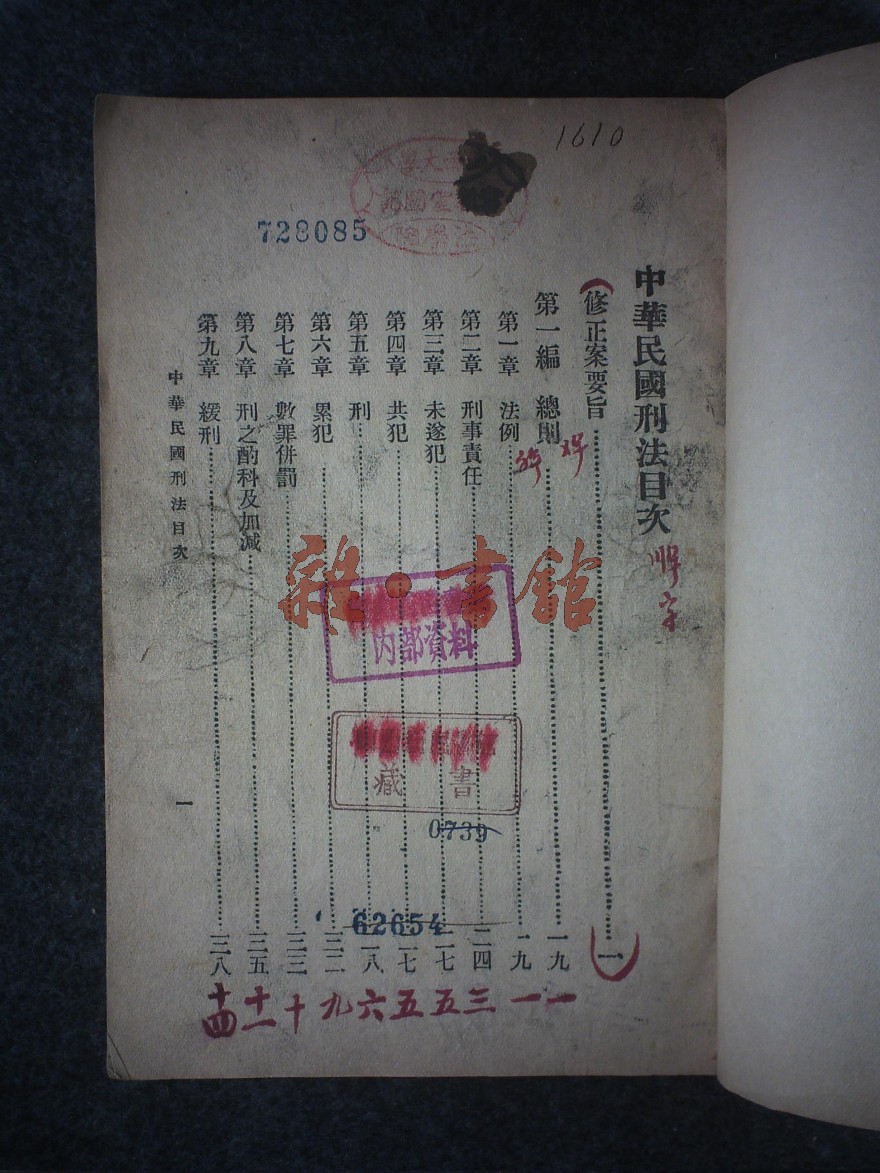 1610
728085
中華民國刑法目次
(修正案要旨……一)
第一編 總則……一九
第一章 法例……一九
第二章 刑事責任……二四
第三章 未遂犯……二七
第四章 共犯……二七
第五章 刑……二八
第六章 累犯……三二
第七章 數罪併罰……三三
第八章 刑之酌科及加減……三五
第九章 緩刑……三八
中華民國刑法目次
一
雜·書館
內部資料
藏書
0739
62654
一 一 三 五 五 六 九 十 十二 十四